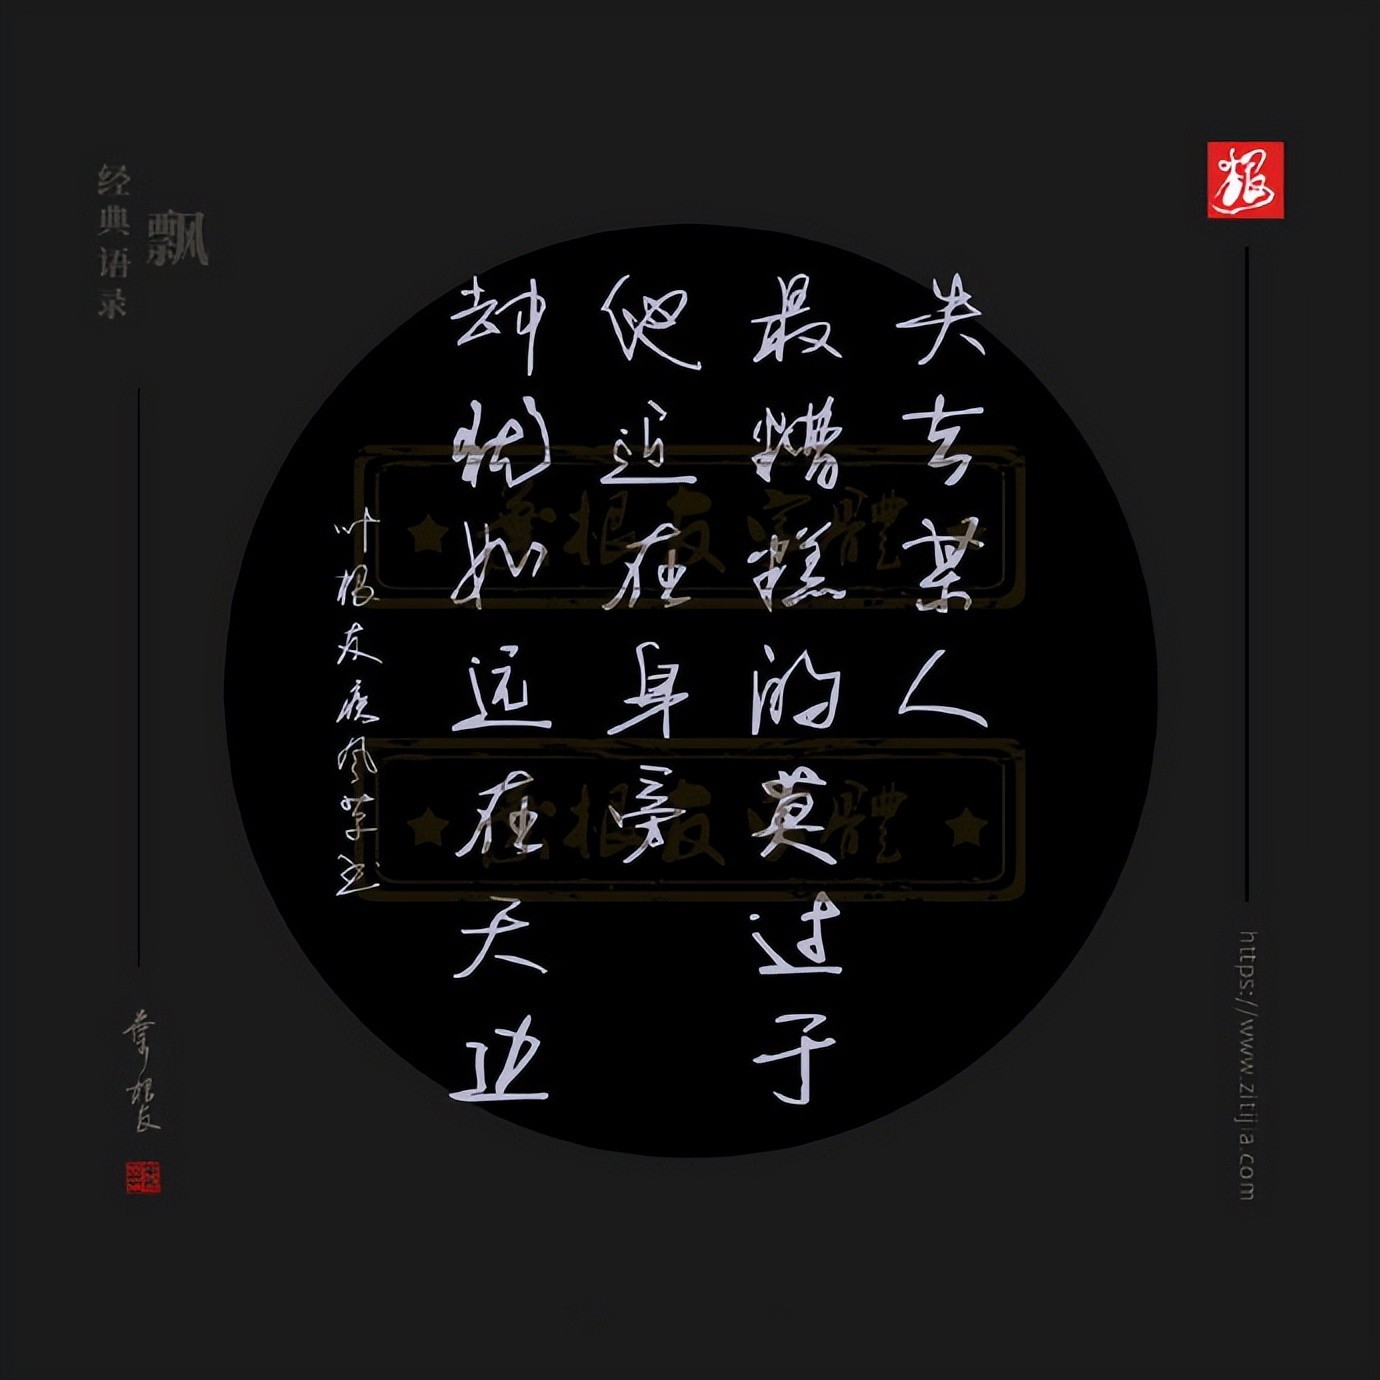 失去某人
最糟糕的莫过于
他近在身旁
却犹如远在天边
叶根友疾风草书
飘
经典语录
葉根友
根
https://www.zitijia.com
葉根友字體
葉根友字體